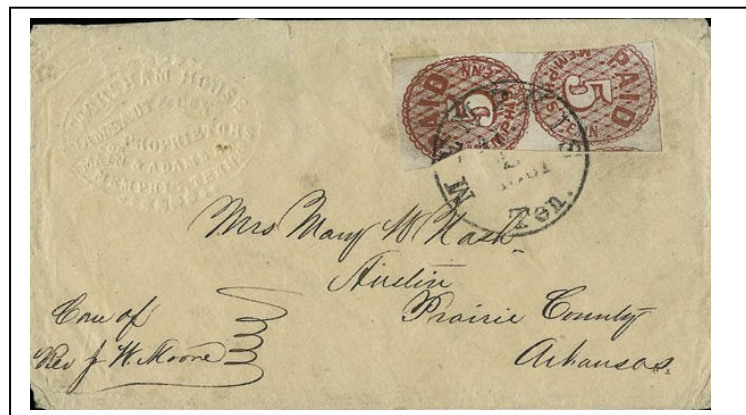 WORSHAM HOUSE
PROPRIETORS
MAIN & ADAMS
MEMPHIS, TENN.
PAID
5
MEMPHIS, TENN
PAID
5
MEMPHIS, TENN
MEMPHIS
1861
Ten.
Mrs Mary W Nash
Austin
Prairie County
Arkansas.
Care of
Rev J. W. Moore